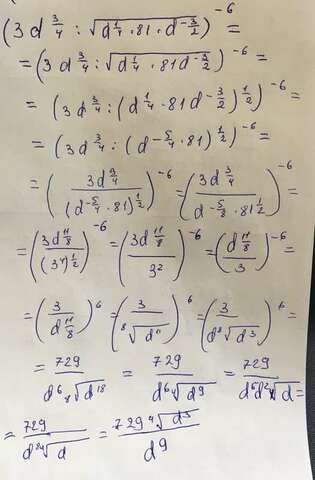 (3d^{3/4} : √(d^{1/4} · 81 · d^{-3/2}))^{-6} =
= (3d^{3/4} : √(d^{1/4} · 81d^{-3/2}))^{-6} =
= (3d^{3/4} : (d^{1/4} · 81d^{-3/2})^{1/2})^{-6} =
= (3d^{3/4} : (d^{-5/4} · 81)^{1/2})^{-6} =
= (3d^{3/4} / (d^{-5/4} · 81)^{1/2})^{-6} = (3d^{3/4} / (d^{-5/8} · 81^{1/2}))^{-6} =
= (3d^{11/8} / (3^4)^{1/2})^{-6} = (3d^{11/8} / 3^2)^{-6} = (d^{11/8} / 3)^{-6} =
= (3 / d^{11/8})^6 = (3 / ⁸√d^{11})^6 = (3 / d⁸√d^3)^6 =
= 729 / d^6 ⁸√d^{18} = 729 / d^6 ⁴√d^9 = 729 / d^6 d^2 ⁴√d =
= 729 / d^8 ⁴√d = 729 ⁴√d^3 / d^9